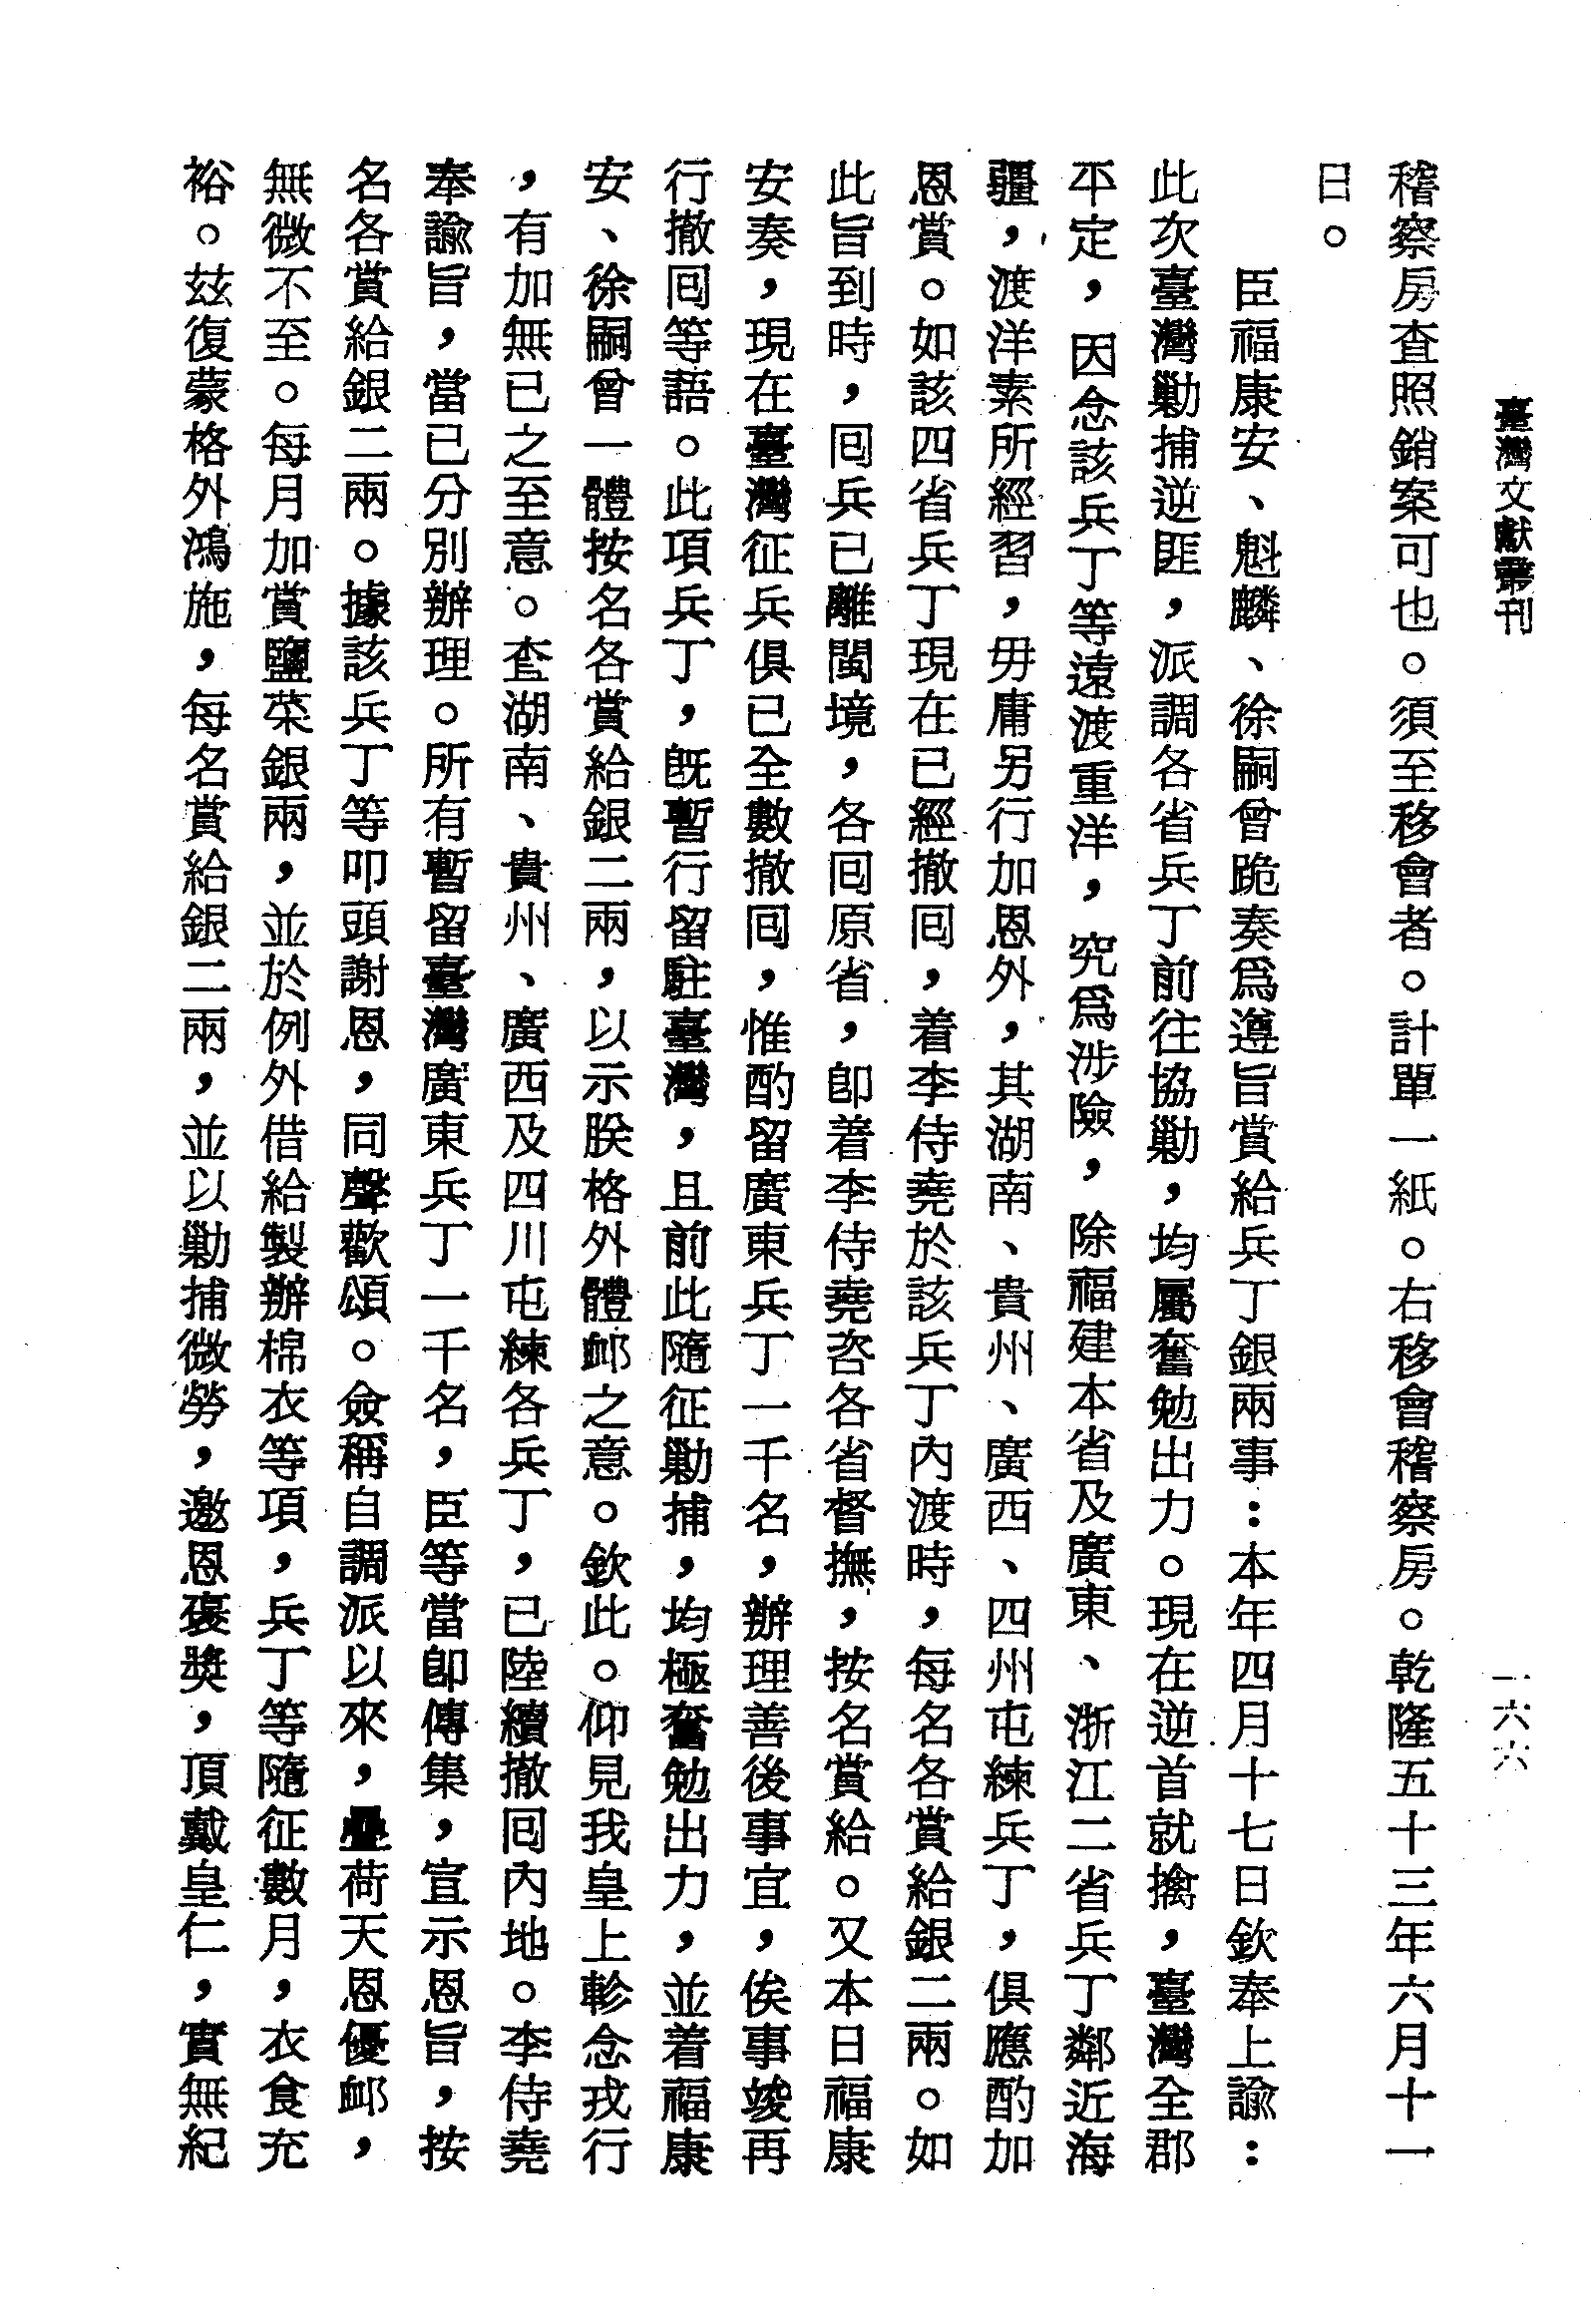 臺灣文獻叢刊
一六六
稽察房查照銷案可也。須至移會者。計單一紙。右移會稽察房。乾隆五十三年六月十一
日。
臣福康安、魁麟、徐嗣曾跪奏爲遵旨賞給兵丁銀兩事:本年四月十七日欽奉上諭:
此次臺灣勦捕逆匪,派調各省兵丁前往協勦,均屬奮勉出力。現在逆首就擒,臺灣全郡
平定,因念該兵丁等遠渡重洋,究爲涉險,除福建本省及廣東、浙江二省兵丁鄰近海
疆,渡洋素所經習,毋庸另行加恩外,其湖南、貴州、廣西、四州屯練兵丁,俱應酌加
恩賞。如該四省兵丁現在已經撤囘,着李侍堯於該兵丁內渡時,每名各賞給銀二兩。如
此旨到時,囘兵已離閩境,各囘原省,卽着李侍堯咨各省督撫,按名賞給。又本日福康
安奏,現在臺灣征兵俱已全數撤囘,惟酌留廣東兵丁一千名,辦理善後事宜,俟事竣再
行撤囘等語。此項兵丁,旣暫行留駐臺灣,且前此隨征勦捕,均極奮勉出力,並着福康
安、徐嗣曾一體按名各賞給銀二兩,以示朕格外體卹之意。欽此。仰見我皇上軫念戎行
,有加無已之至意。查湖南、貴州、廣西及四川屯練各兵丁,已陸續撤囘內地。李侍堯
奉諭旨,當已分別辦理。所有暫留臺灣廣東兵丁一千名,臣等當卽傳集,宣示恩旨,按
名各賞給銀二兩。據該兵丁等叩頭謝恩,同聲歡頌。僉稱自調派以來,疊荷天恩優卹,
無微不至。每月加賞鹽菜銀兩,並於例外借給製辦棉衣等項,兵丁等隨征數月,衣食充
裕。茲復蒙格外鴻施,每名賞給銀二兩,並以勦捕微勞,邀恩褒獎,頂戴皇仁,實無紀